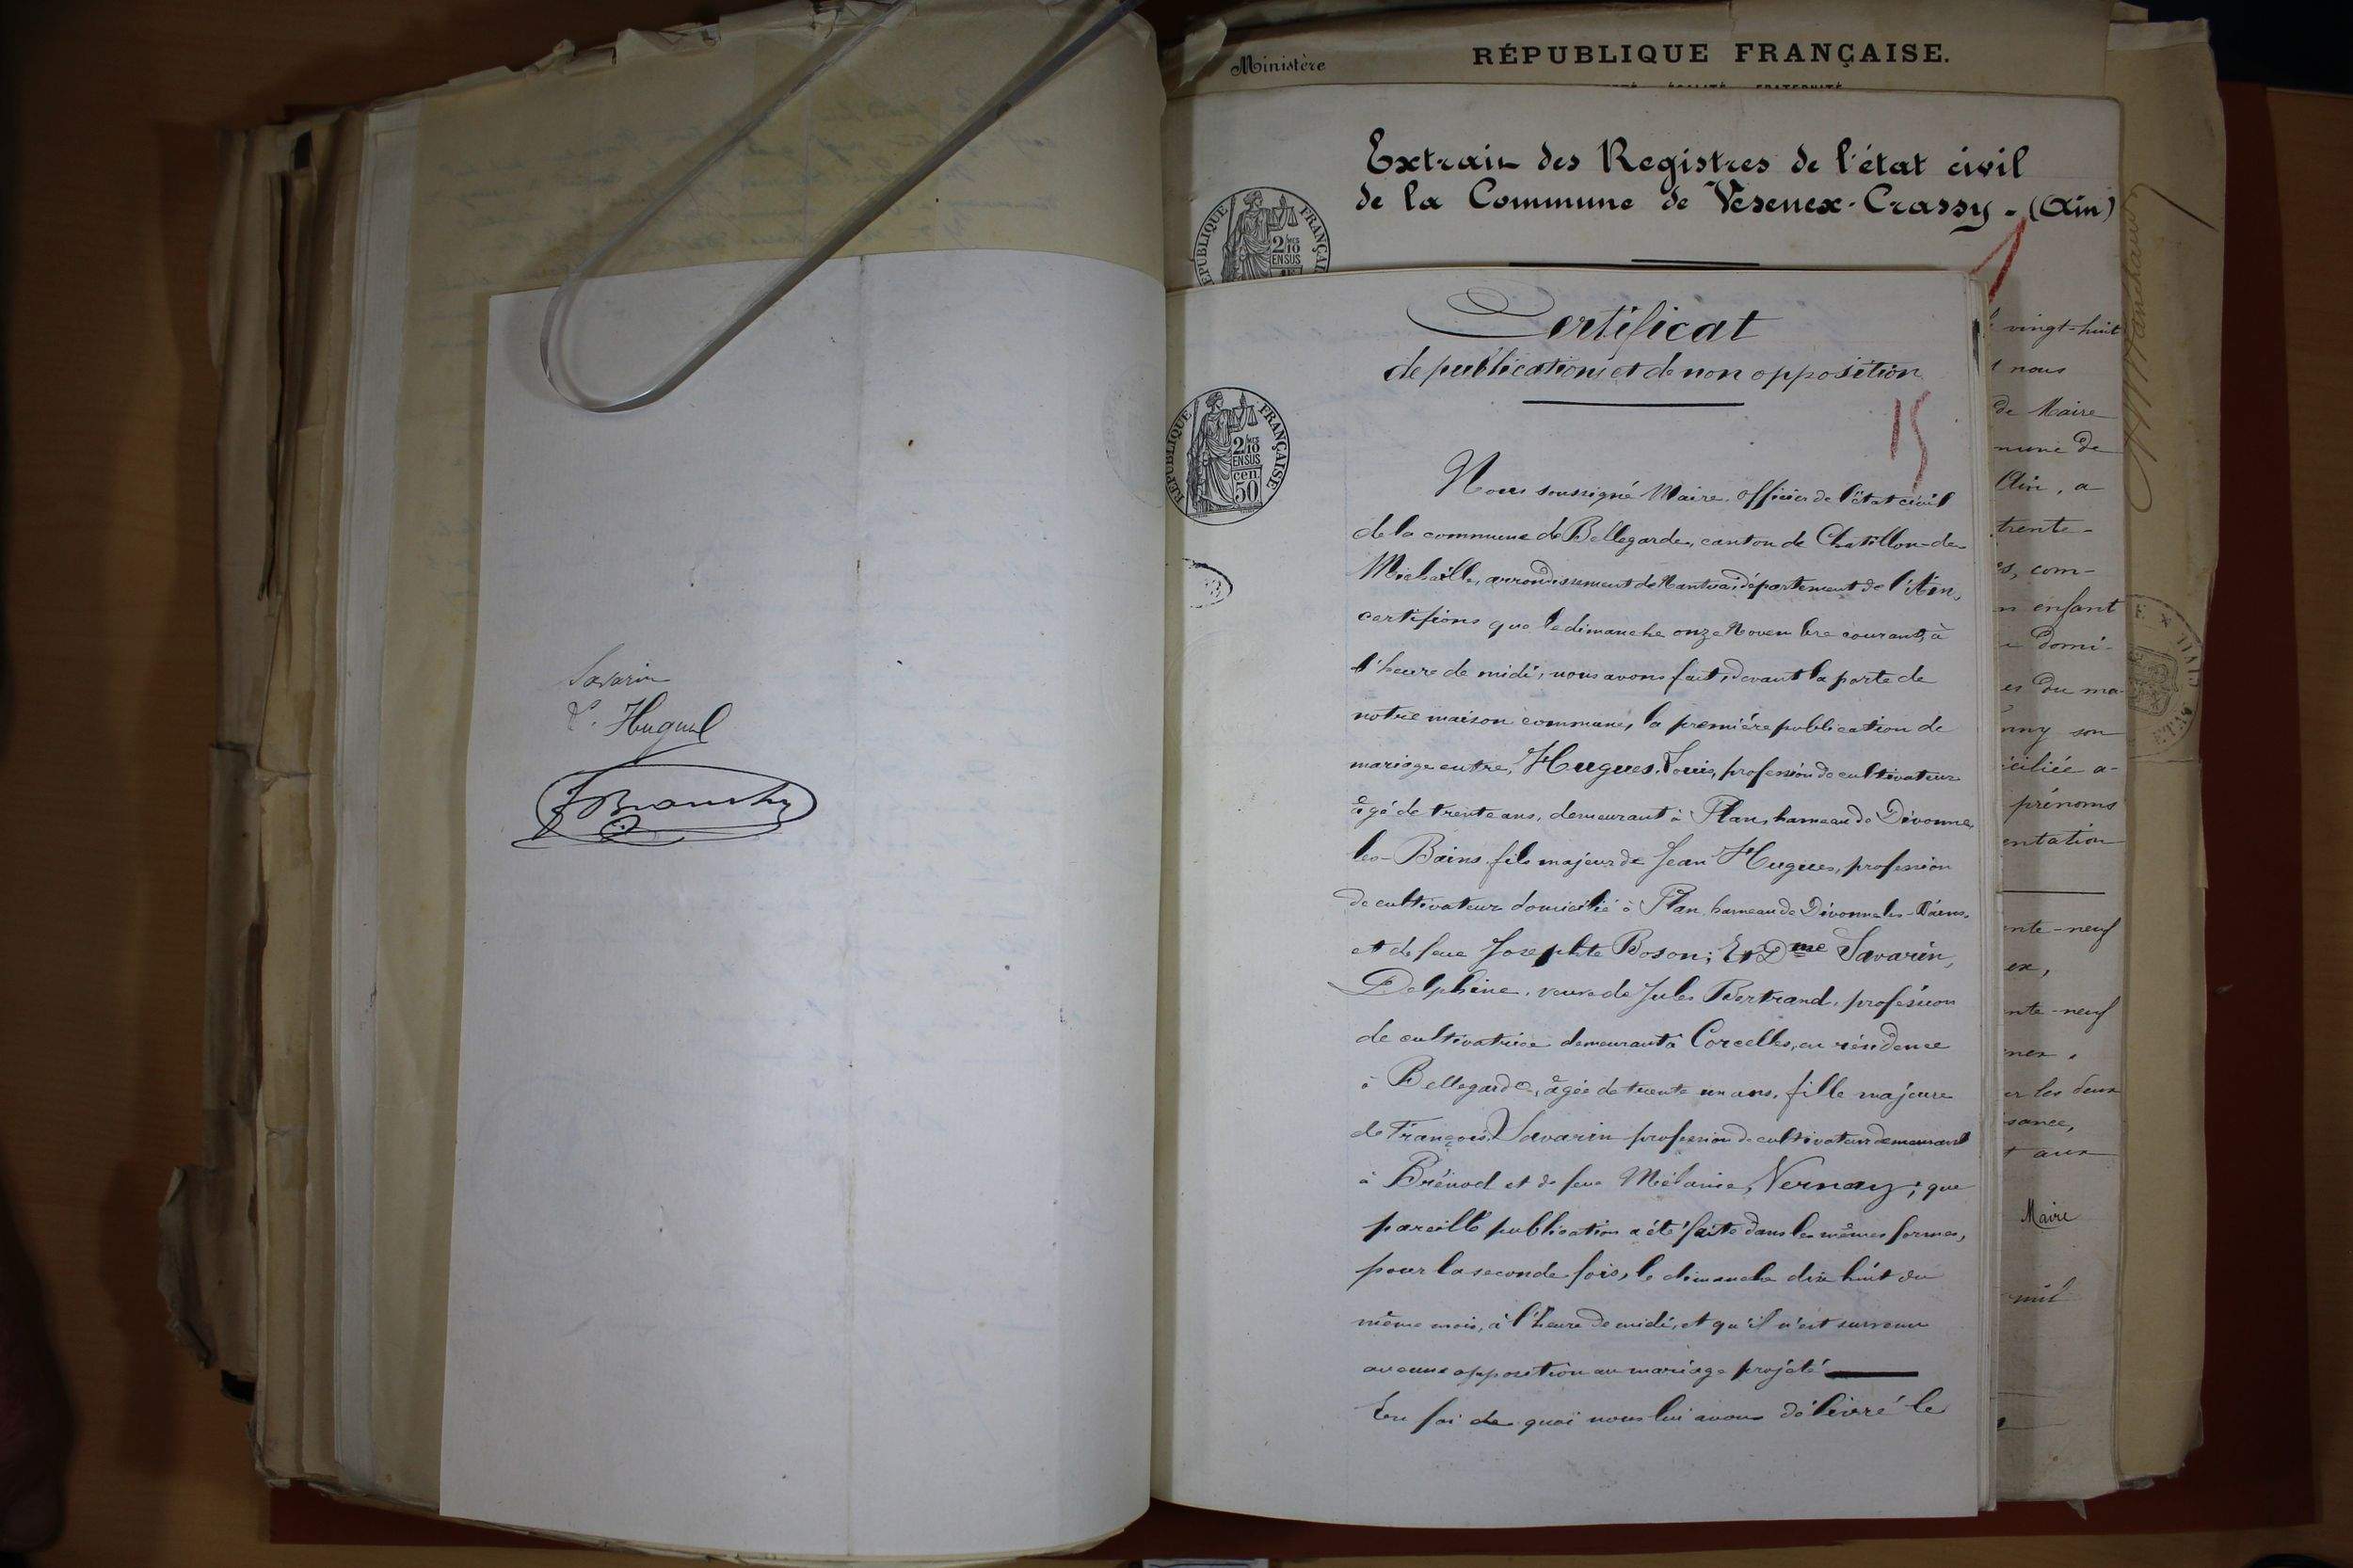 Savarin
L. Hugues
Ministère
RÉPUBLIQUE FRANÇAISE.
Extrait des Registres de l'état civil
de la Commune de Vesenex-Crassy - (Ain)
RÉPUBLIQUE FRANÇAISE
2/10
EN SUS
Certificat
de publications et de non opposition
15
RÉPUBLIQUE FRANÇAISE
2/10
EN SUS
cen.
50
Nous soussigné Maire, officier de l'état civil
de la commune de Bellegarde, canton de Chatillon-de-
Michaille, arrondissement de Nantua, département de l'Ain,
certifions que le dimanche onze Novembre courant, à
l'heure de midi, nous avons fait, devant la porte de
notre maison commune, la première publication de
mariage entre, Hugues, Louis, profession de cultivateur
âgé de trente ans, demeurant à Plan, hameau de Divonne-
les-Bains, fils majeur de Jean Hugues, profession
de cultivateur domicilié à Plan, hameau de Divonne les-Bains,
et de feue Josephte Boson; Et Dme Savarin,
Delphine, veuve de Jules Bertrand, profession
de cultivatrice demeurant à Corcelles, en résidence
à Bellegarde, âgée de trente un ans, fille majeure
de François Savarin profession de cultivateur demeurant
à Brénod et de feue Mélanie, Vernay; que
pareille publication a été faite dans les mêmes formes,
pour la seconde fois, le dimanche dix huit du
même mois, à l'heure de midi, et qu'il n'est survenu
aucune opposition au mariage projeté
En foi de quoi nous lui avons délivré le
vingt-huit
nous
de Maire
mune de
l'Ain, a
trente-
es, com-
enfant
domi-
es du ma-
nny son
iciliée a-
prénoms
entation
nte-neuf
ex,
nte-neuf
nex,
er les deux
sance,
t aux
Maire
mil